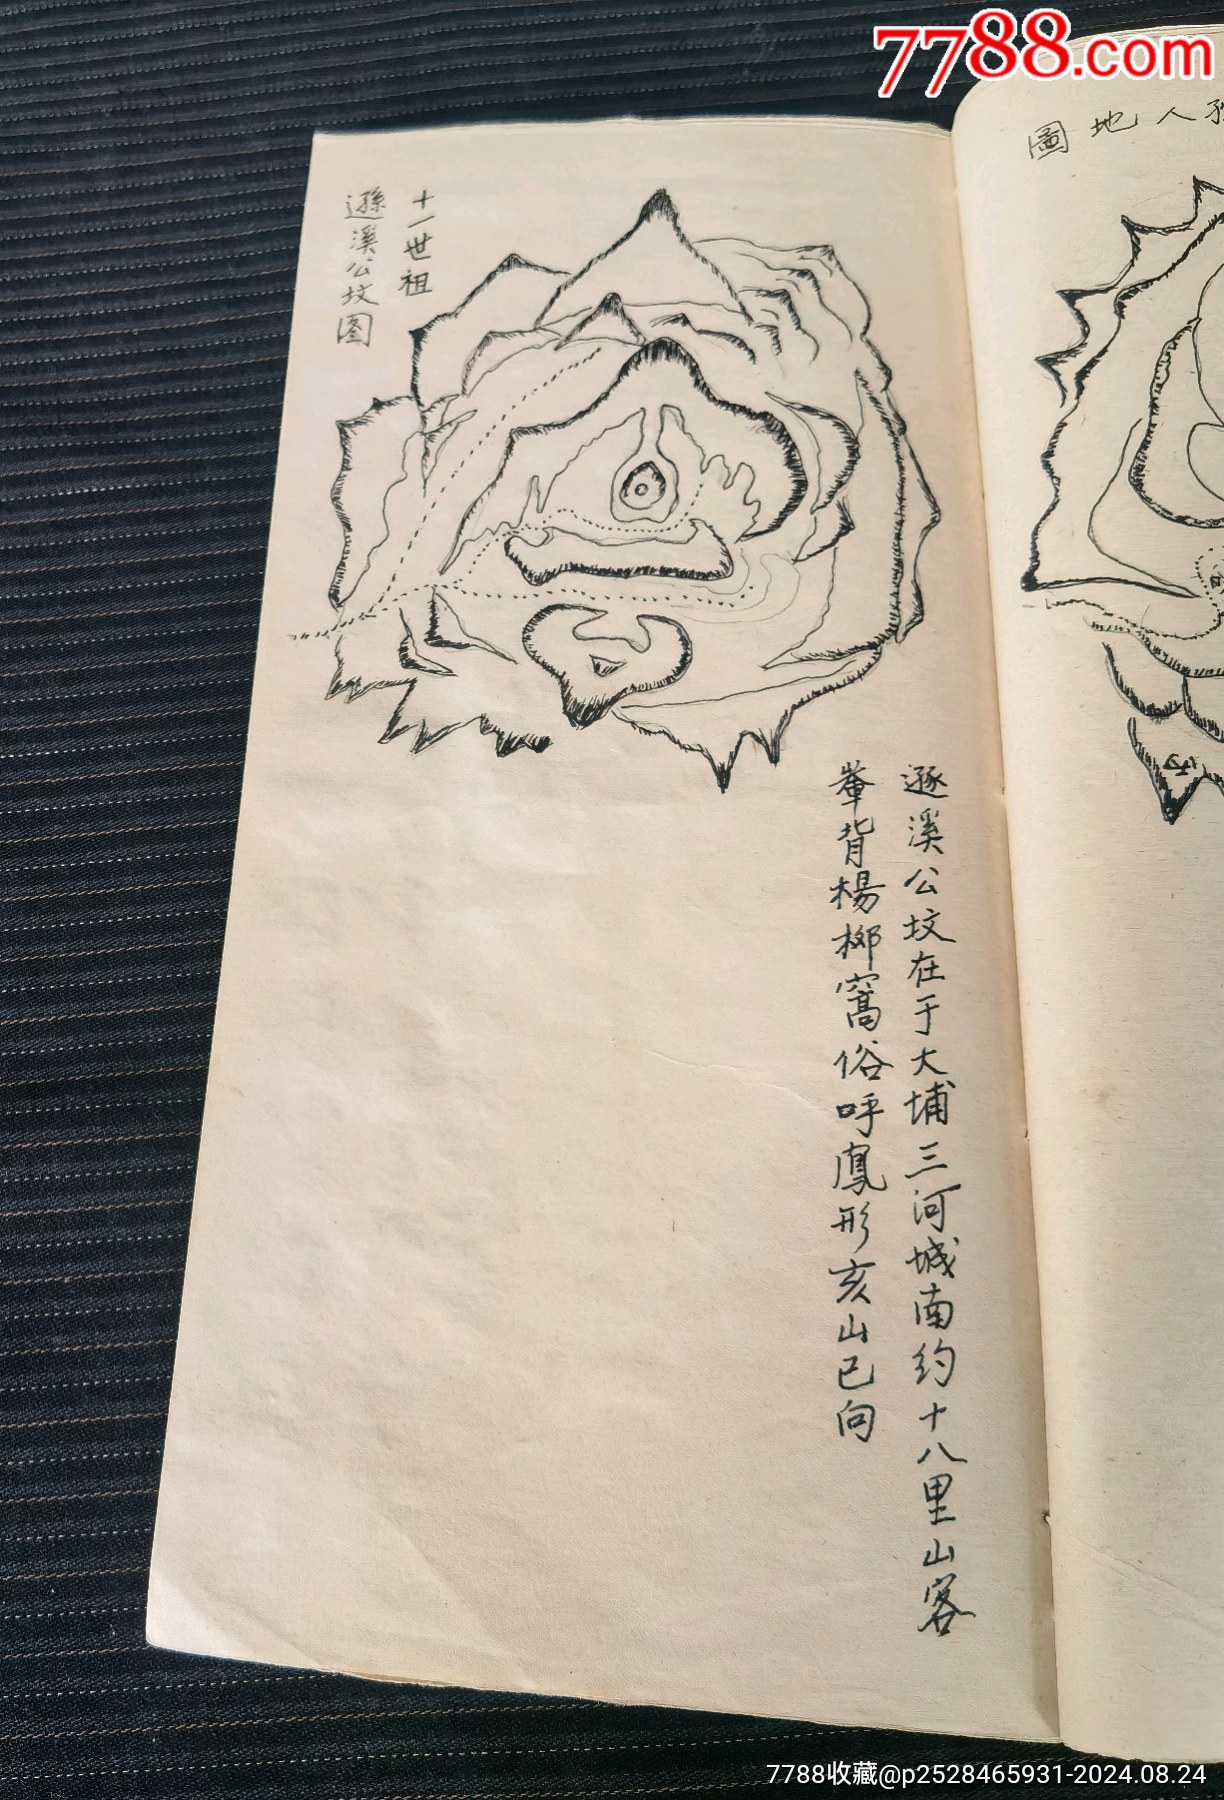 7788.com
圖地人
十一世祖
遜溪公坟图
遜溪公坟在于大埔三河城南约十八里山客
輋背楊柳窩俗呼鳳形亥山已向
7788收藏@p2528465931-2024.08.24